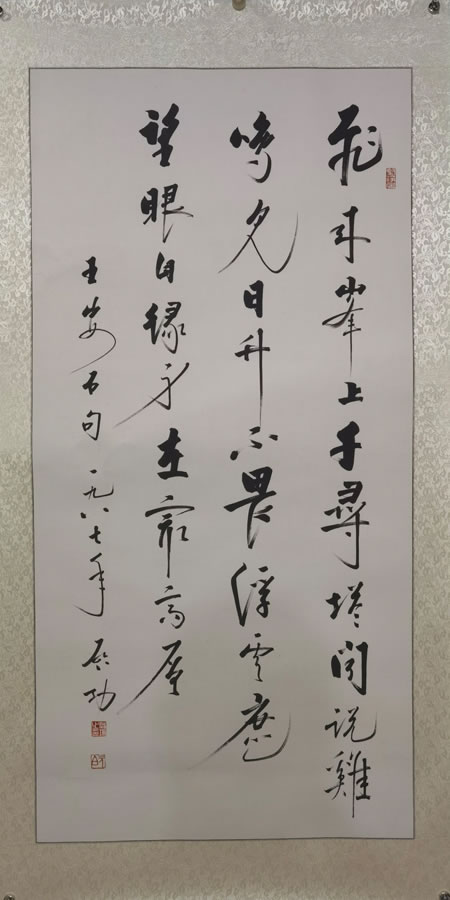 飛来峯上千尋塔聞说雞
鳴見日升不畏浮雲遮
望眼自緣身在最高層
王安石句 一九八七年 启功